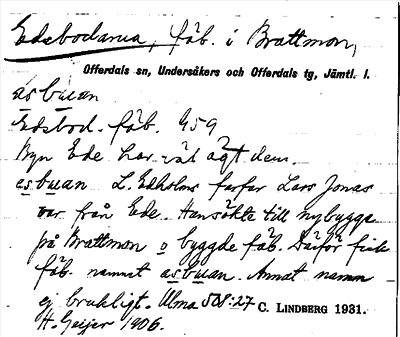 Edebodarna, fäb. i Brattmon,
Offerdals sn, Undersåkers och Offerdals tg, Jämtl. l.
asbuan
Edsbod. fäb. G59
Byn Ede har väl ägt dem.
asbuan L. Edholms farfar Lars Jonas
var från Ede. Han sökte till nybygge
på Brattmon o byggde fäb. Därför fick
fäb. namnet asbuan. Annat namn
ej brukligt. Ulma 501:27 C. LINDBERG 1931.
H. Geijer 1906.